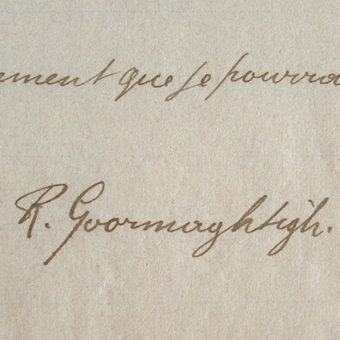 ement que je pourra
R. Goormaghtigh.